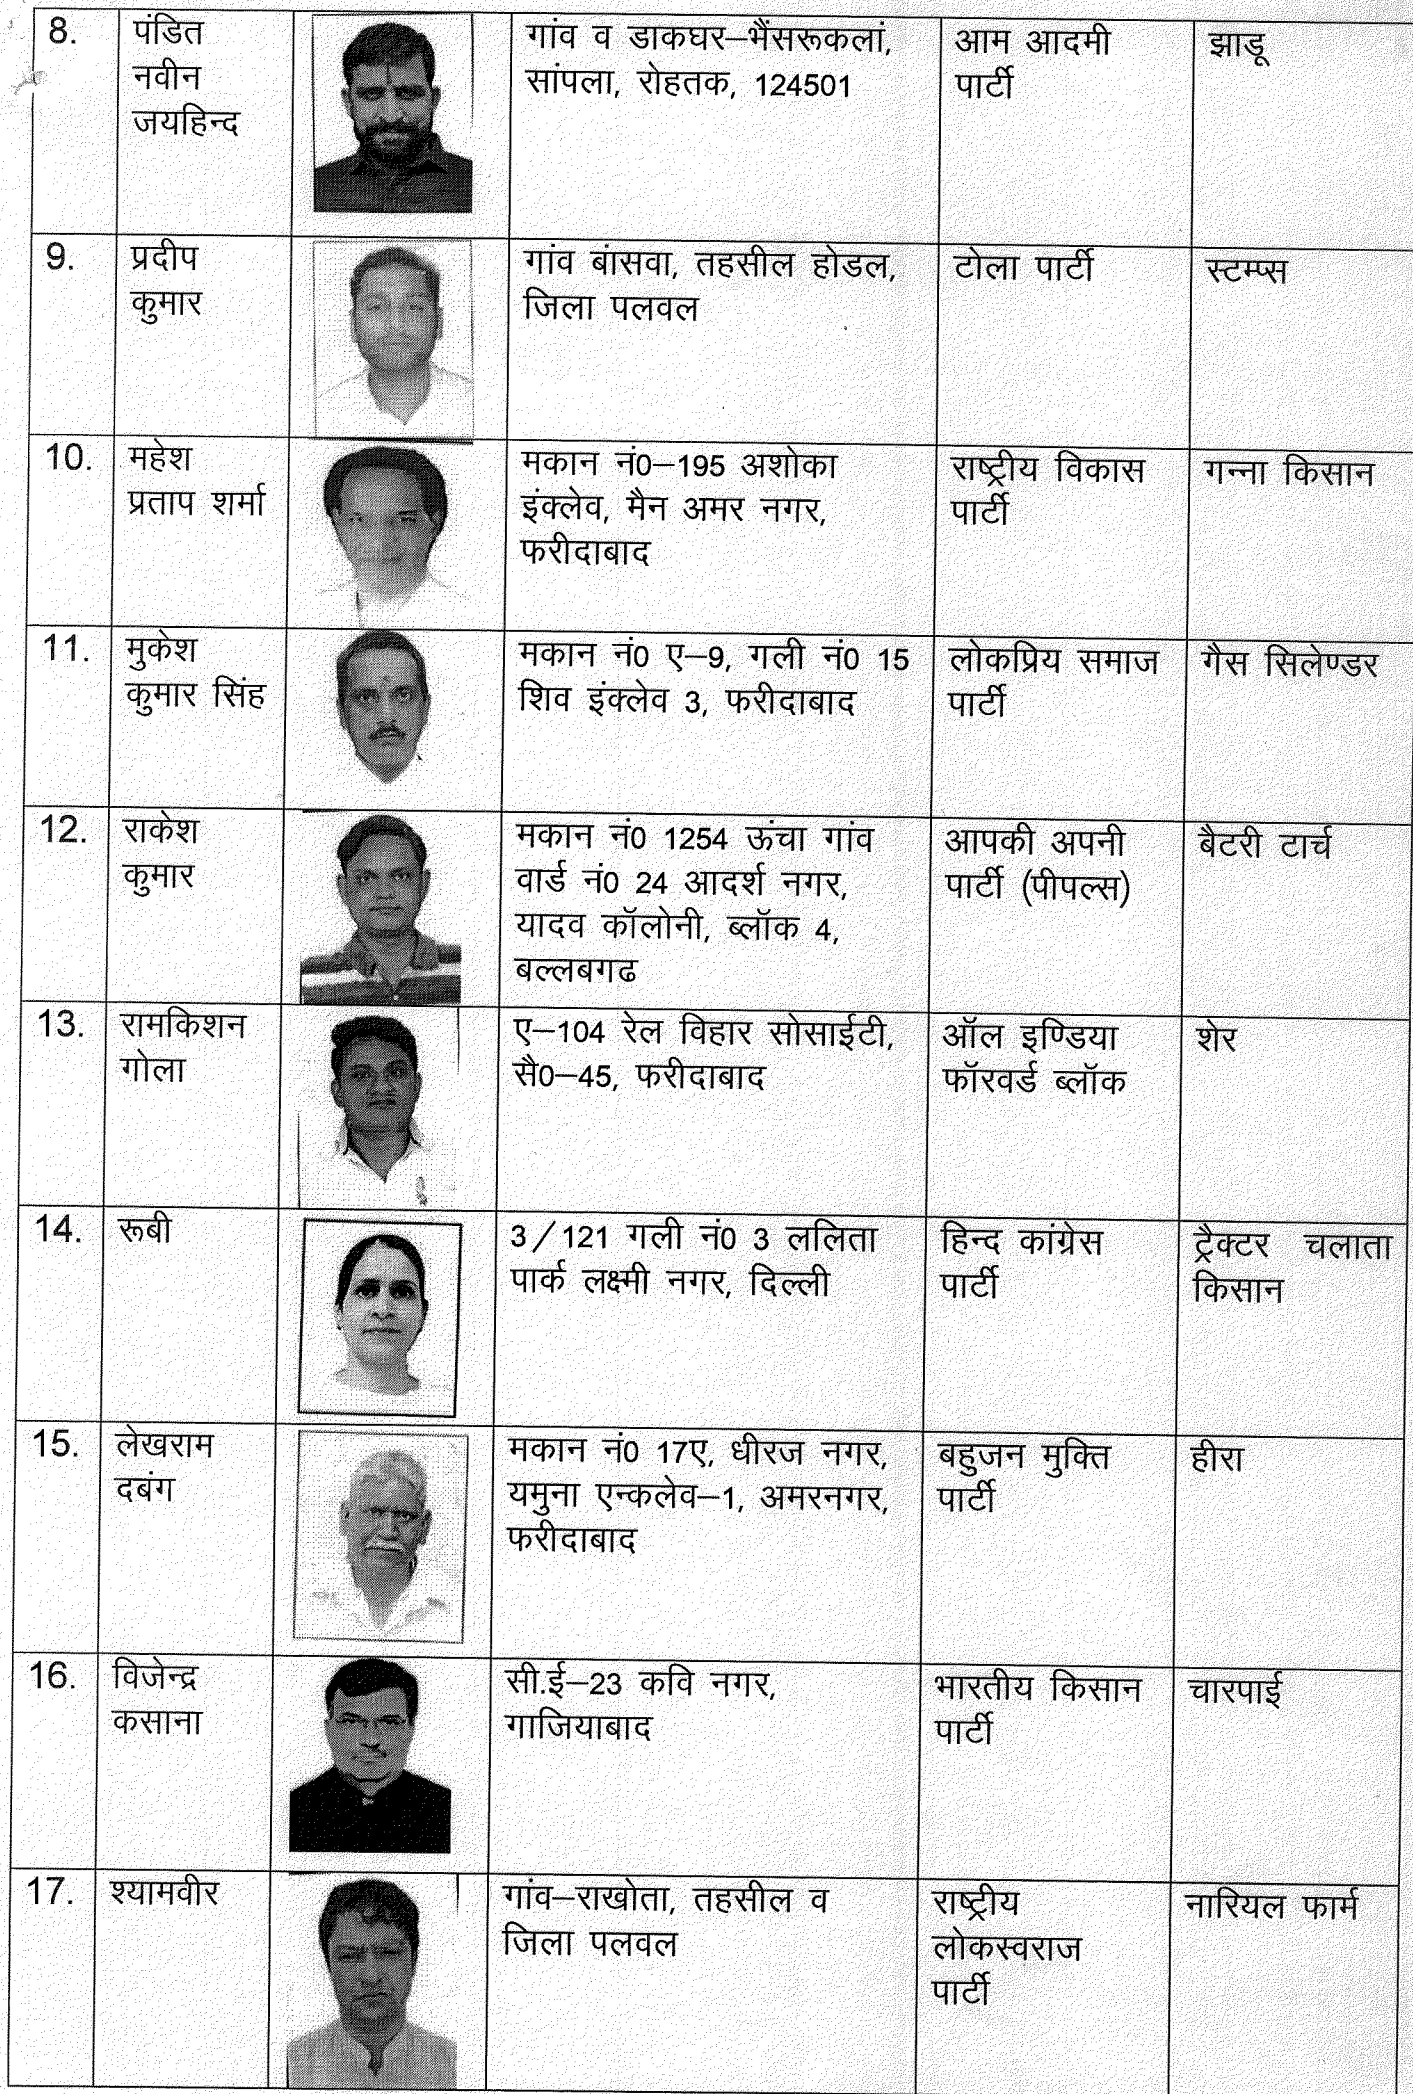 8. पंडित नवीन जयहिन्द गांव व डाकघर–भैंसरूकलां, सांपला, रोहतक, 124501 आम आदमी पार्टी झाडू
9. प्रदीप कुमार गांव बांसवा, तहसील होडल, जिला पलवल टोला पार्टी स्टम्प्स
10. महेश प्रताप शर्मा मकान नं0–195 अशोका इंक्लेव, मैन अमर नगर, फरीदाबाद राष्ट्रीय विकास पार्टी गन्ना किसान
11. मुकेश कुमार सिंह मकान नं0 ए–9, गली नं0 15 शिव इंक्लेव 3, फरीदाबाद लोकप्रिय समाज पार्टी गैस सिलेण्डर
12. राकेश कुमार मकान नं0 1254 ऊंचा गांव वार्ड नं0 24 आदर्श नगर, यादव कॉलोनी, ब्लॉक 4, बल्लबगढ आपकी अपनी पार्टी (पीपल्स) बैटरी टार्च
13. रामकिशन गोला ए–104 रेल विहार सोसाईटी, सै0–45, फरीदाबाद ऑल इण्डिया फॉरवर्ड ब्लॉक शेर
14. रूबी 3/121 गली नं0 3 ललिता पार्क लक्ष्मी नगर, दिल्ली हिन्द कांग्रेस पार्टी ट्रैक्टर चलाता किसान
15. लेखराम दबंग मकान नं0 17ए, धीरज नगर, यमुना एन्कलेव–1, अमरनगर, फरीदाबाद बहुजन मुक्ति पार्टी हीरा
16. विजेन्द्र कसाना सी.ई–23 कवि नगर, गाजियाबाद भारतीय किसान पार्टी चारपाई
17. श्यामवीर गांव–राखोता, तहसील व जिला पलवल राष्ट्रीय लोकस्वराज पार्टी नारियल फार्म